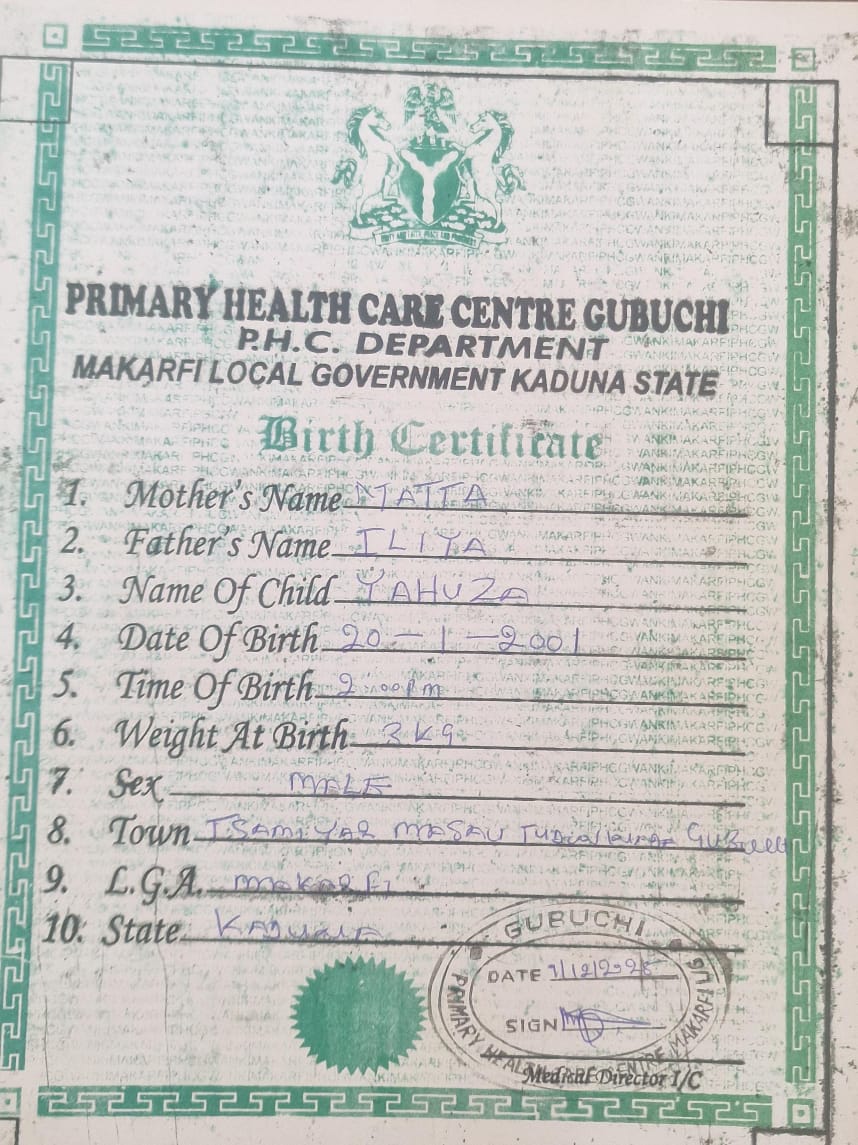 PRIMARY HEALTH CARE CENTRE GUBUCHI
P.H.C. DEPARTMENT
MAKARFI LOCAL GOVERNMENT KADUNA STATE
Birth Certificate
1. Mother's Name MATTA
2. Father's Name ILIYA
3. Name Of Child YAHUZA
4. Date Of Birth 20-1-2001
5. Time Of Birth 2:00pm
6. Weight At Birth 3kg
7. Sex MALE
8. Town TSAMIYAR MASAU GUBUCHI
9. L.G.A. MAKARFI
10. State KADUNA
GUBUCHI
DATE 1/12/2025
SIGN
PRIMARY HEALTH CARE CENTRE MAKARFI LG
Medical Director I/C